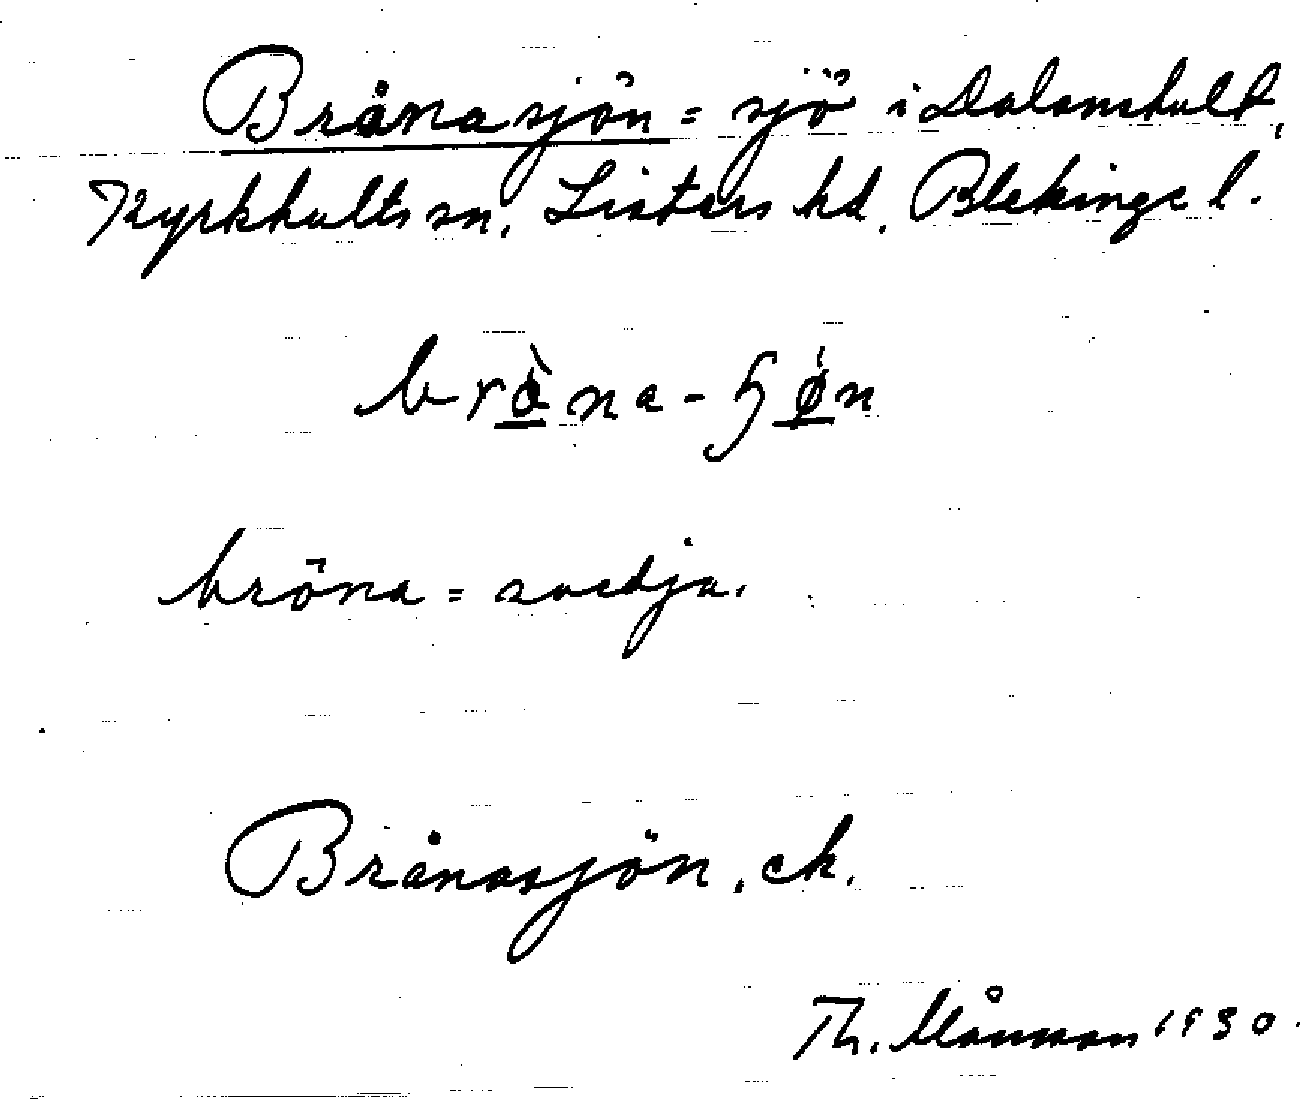 Brånasjön = sjö i Dalanshult,
Kyrkhults sn, Listers hd, Blekinge l.
bröna = svedja.
Brånasjön, ek.
Th. Månsson 1930.